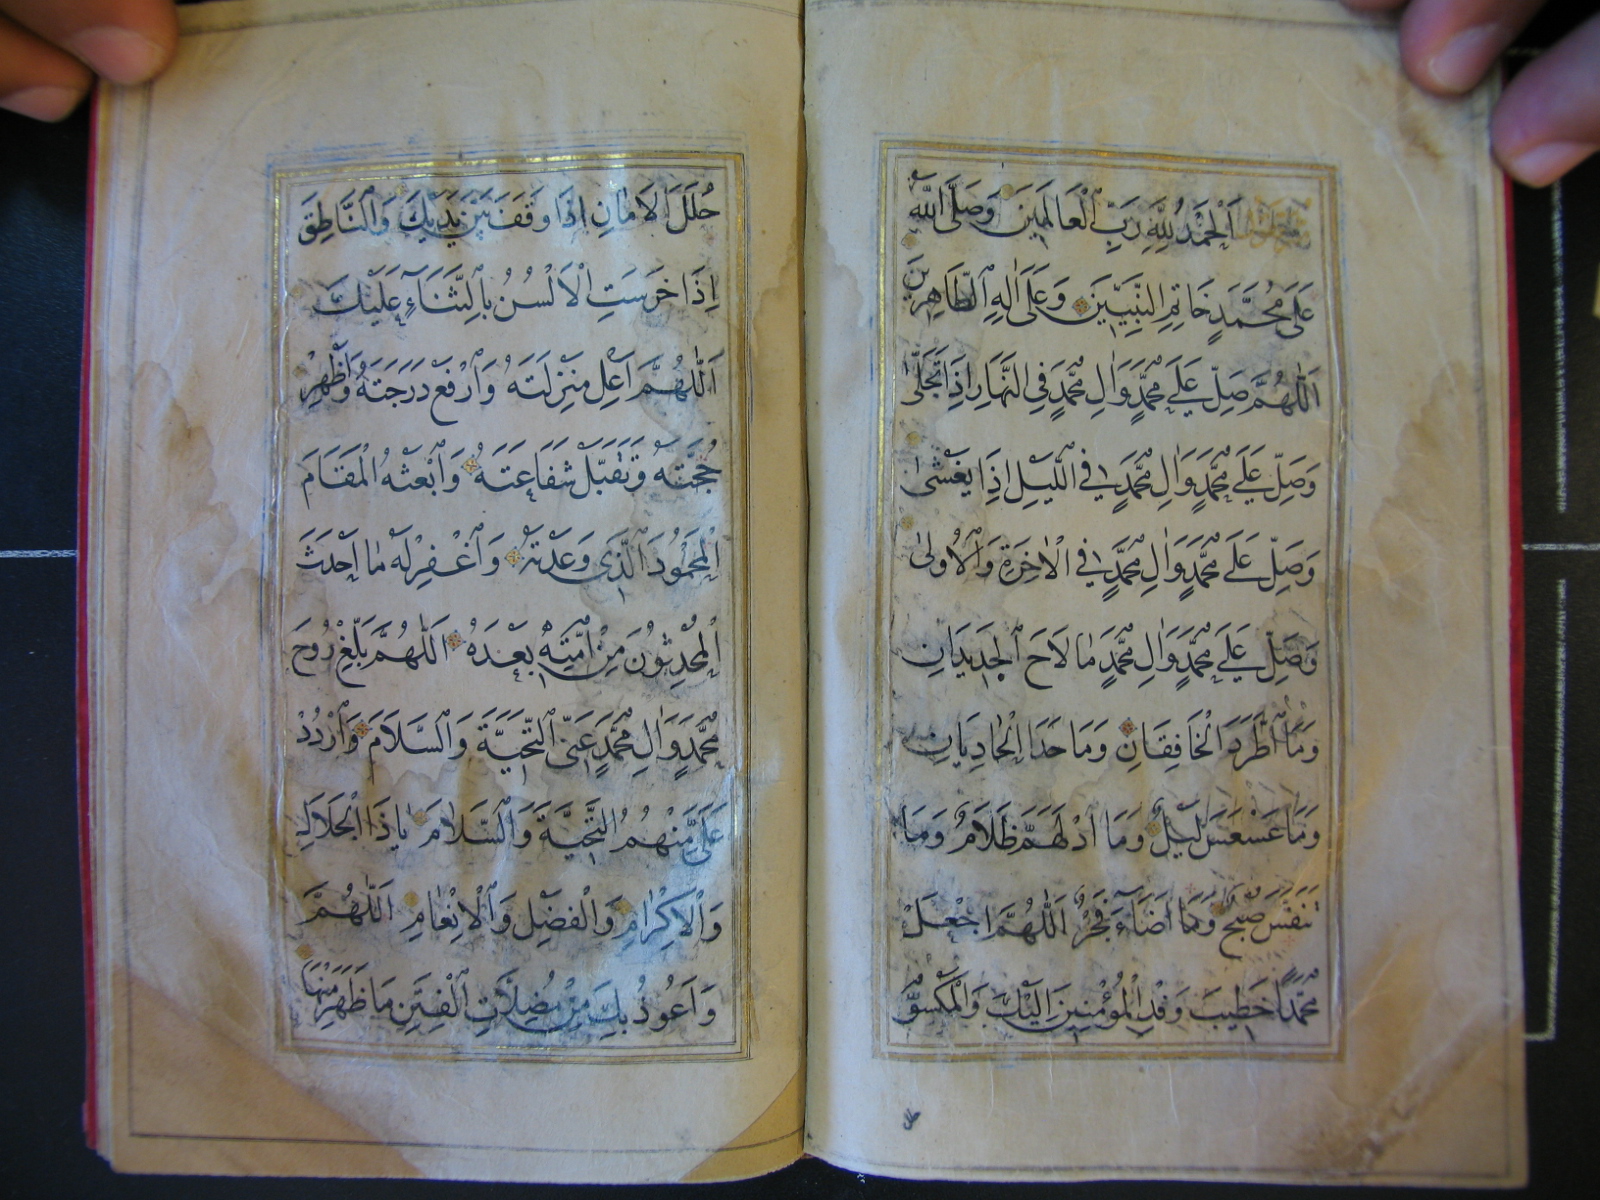 اَلْحَمْدُ لِلّٰهِ رَبِّ الْعَالَمِينَ وَصَلَّى اللّٰهُ
عَلَى مُحَمَّدٍ خَاتِمِ النَّبِيِّينَ وَعَلَى اٰلِهِ الطَّاهِرِينَ
اَللّٰهُمَّ صَلِّ عَلَى مُحَمَّدٍ وَاٰلِ مُحَمَّدٍ فِي النَّهَارِ اِذَا تَجَلّٰى
وَصَلِّ عَلَى مُحَمَّدٍ وَاٰلِ مُحَمَّدٍ فِي اللَّيْلِ اِذَا يَغْشٰى
وَصَلِّ عَلَى مُحَمَّدٍ وَاٰلِ مُحَمَّدٍ فِي الْاٰخِرَةِ وَالْاُولٰى
وَصَلِّ عَلَى مُحَمَّدٍ وَاٰلِ مُحَمَّدٍ مَا لَاحَ الْجَدِيدَانِ
وَمَا اطَّرَدَ الْخَافِقَانِ وَمَا حَدَا الْحَادِيَانِ
وَمَا عَسْعَسَ لَيْلٌ وَمَا ادْلَهَمَّ ظَلَامٌ وَمَا
تَنَفَّسَ صُبْحٌ وَمَا اَضَاءَ فَجْرٌ اَللّٰهُمَّ اجْعَلْ
مُحَمَّدًا خَطِيبَ وَفْدِ الْمُؤْمِنِينَ اِلَيْكَ وَالْمَكْسُوَّ
حُلَلَ الْاَمَانِ اِذَا وَقَفَ بَيْنَ يَدَيْكَ وَالنَّاطِقَ
اِذَا خَرِسَتِ الْاَلْسُنُ بِالثَّنَاءِ عَلَيْكَ
اَللّٰهُمَّ اَعْلِ مَنْزِلَتَهُ وَارْفَعْ دَرَجَتَهُ وَاَظْهِرْ
حُجَّتَهُ وَتَقَبَّلْ شَفَاعَتَهُ وَابْعَثْهُ الْمَقَامَ
الْمَحْمُودَ الَّذِي وَعَدْتَهُ وَاغْفِرْ لَهُ مَا اَحْدَثَ
الْمُحْدِثُونَ مِنْ اُمَّتِهِ بَعْدَهُ اَللّٰهُمَّ بَلِّغْ رُوحَ
مُحَمَّدٍ وَاٰلِ مُحَمَّدٍ عَنِّي التَّحِيَّةَ وَالسَّلَامَ وَارْدُدْ
عَلَيَّ مِنْهُمُ التَّحِيَّةَ وَالسَّلَامَ يَا ذَا الْجَلَالِ
وَالْاِكْرَامِ وَالْفَضْلِ وَالْاِنْعَامِ اَللّٰهُمَّ
وَاَعُوذُ بِكَ مِنْ مُضِلَّاتِ الْفِتَنِ مَا ظَهَرَ مِنْهَا